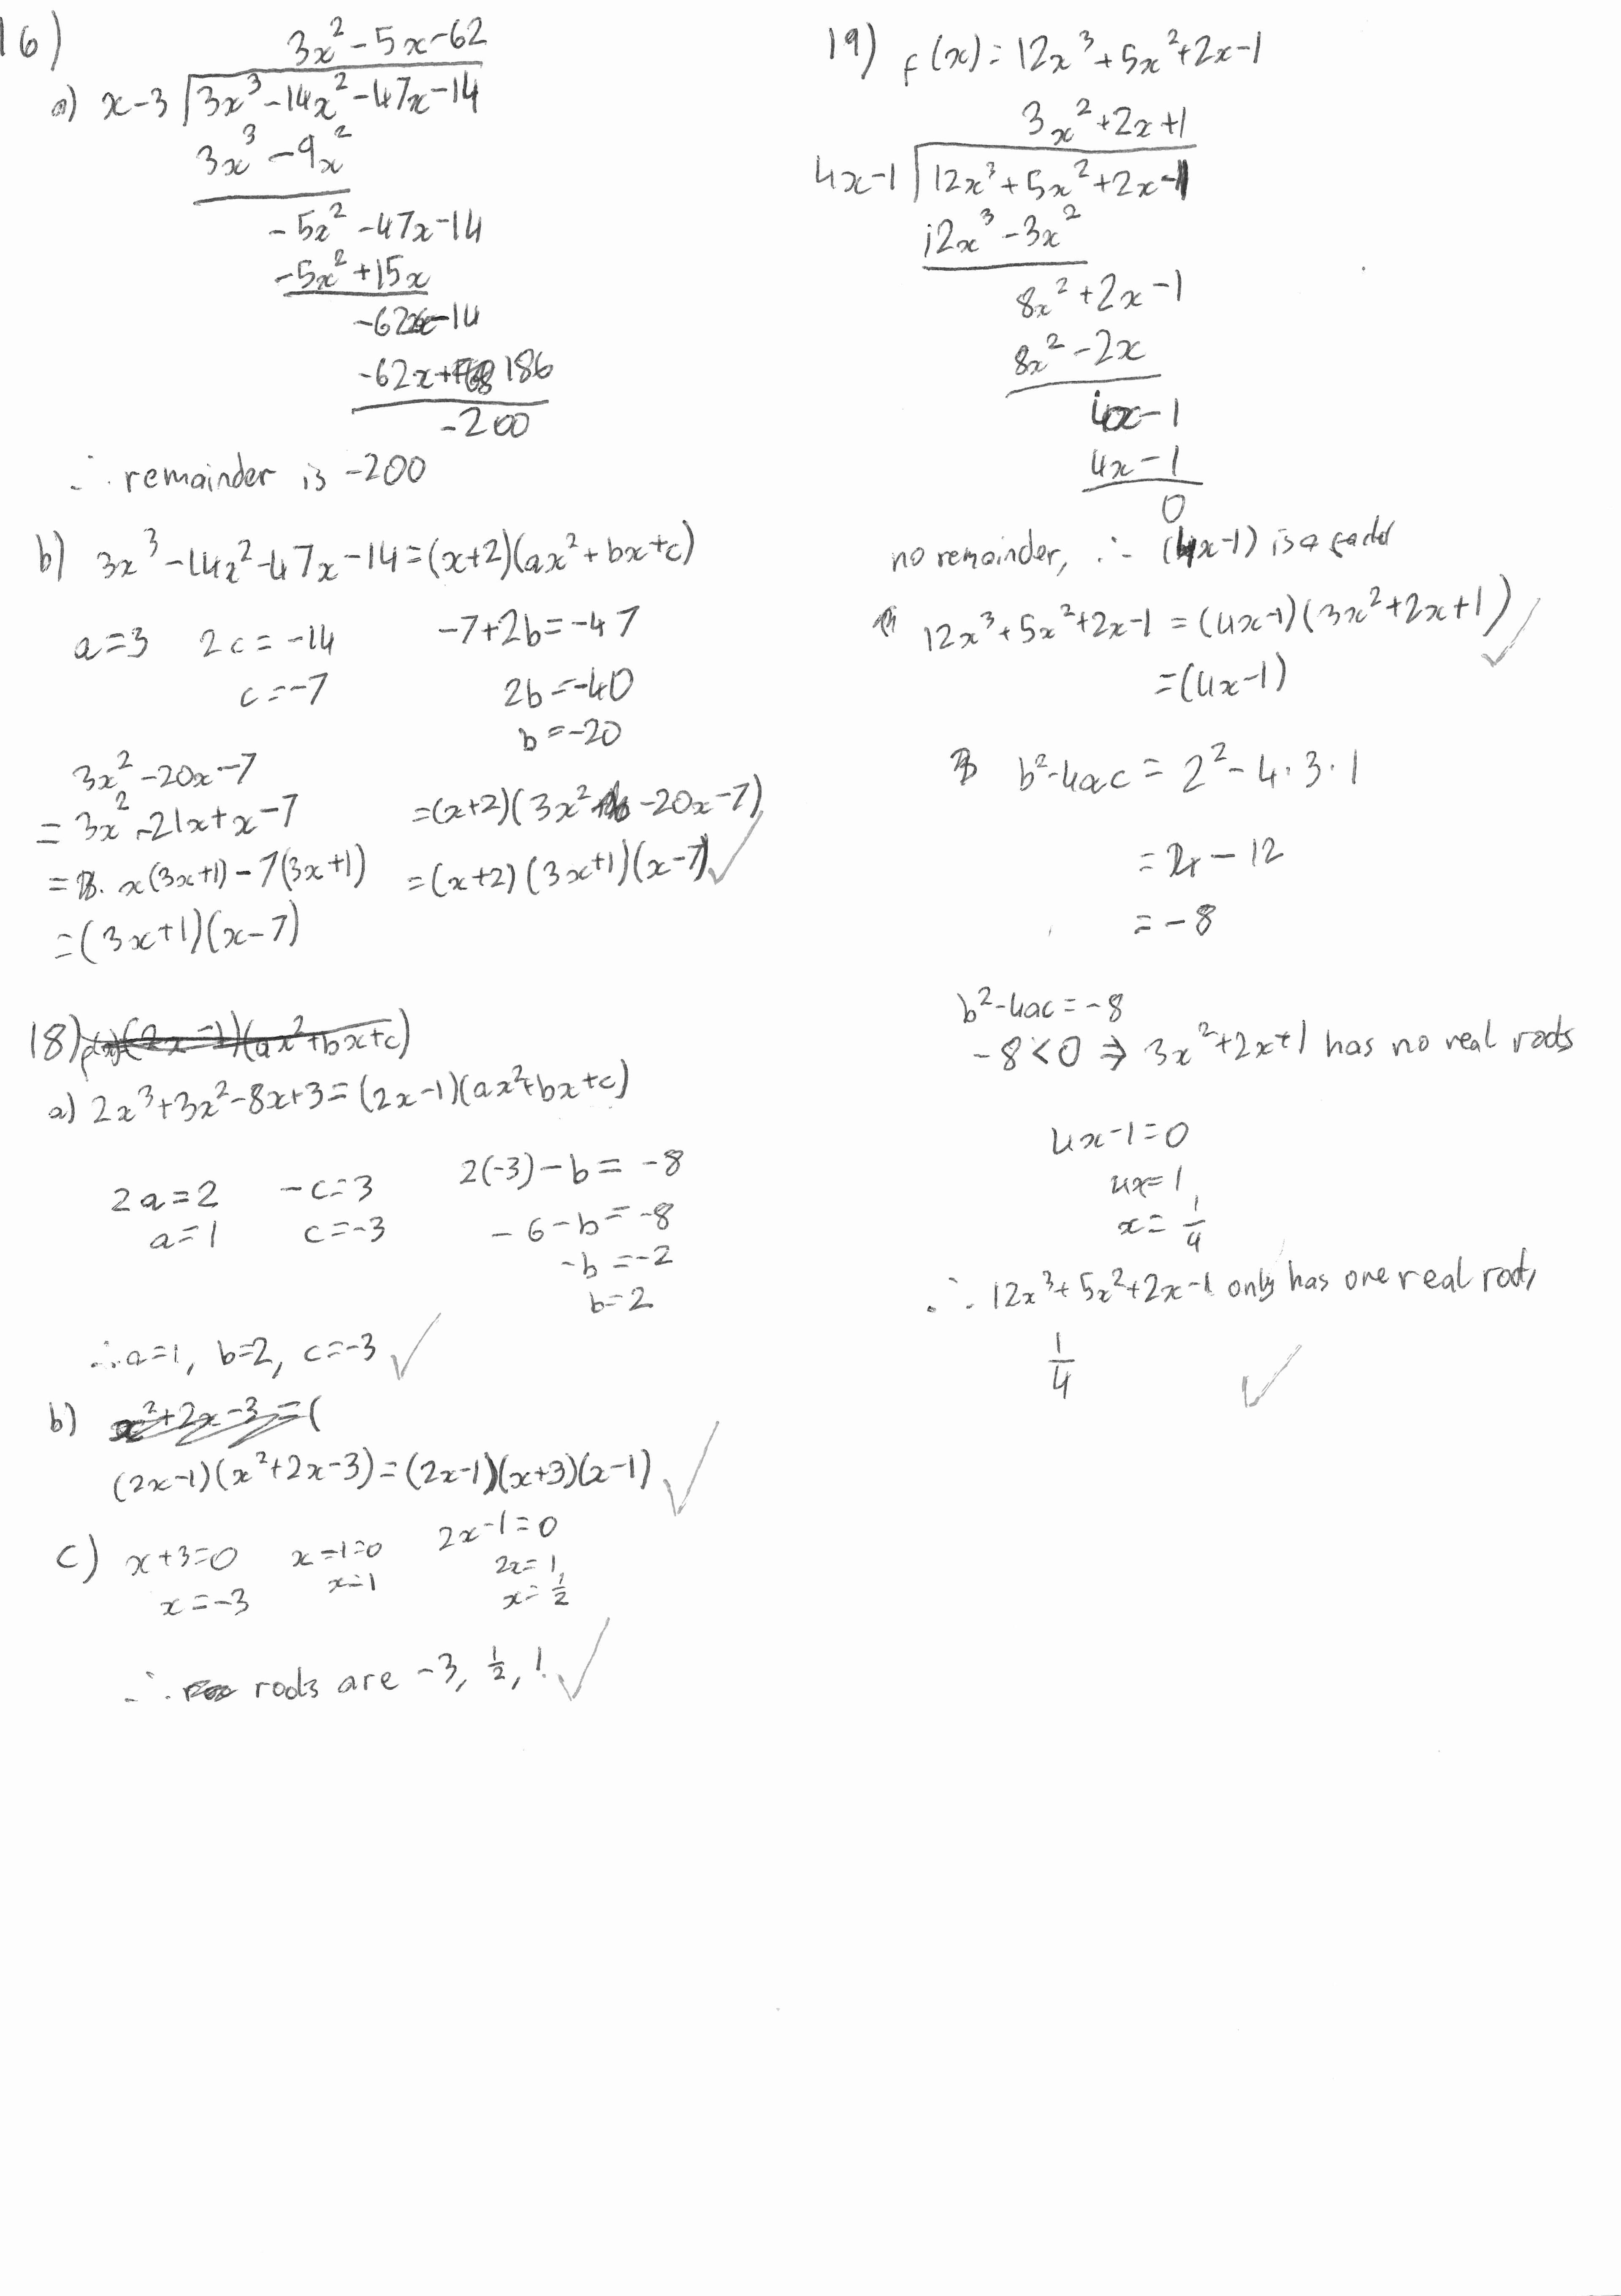 16)
3x² - 5x - 62
a) x-3 | 3x³ - 14x² - 47x - 14
3x³ - 9x²
-5x² - 47x - 14
-5x² + 15x
-62x - 14
-62x + 186
-200
∴ remainder is -200
b) 3x³ - 14x² - 47x - 14 = (x+2)(ax² + bx + c)
a = 3   2c = -14   -7 + 2b = -47
c = -7   2b = -40
b = -20
3x² - 20x - 7
= 3x² - 21x + x - 7   = (x+2)(3x² - 20x - 7) ✓
= x(3x+1) - 7(3x+1)   = (x+2)(3x+1)(x-7)
= (3x+1)(x-7)
18) (2x-1)(ax² + bx + c)
a) 2x³ + 3x² - 8x + 3 = (2x-1)(ax² + bx + c)
2a = 2   -c = 3   2(-3) - b = -8
a = 1   c = -3   -6 - b = -8
-b = -2
b = 2
∴ a = 1, b = 2, c = -3 ✓
b) x² + 2x - 3 = (
(2x-1)(x² + 2x - 3) = (2x-1)(x+3)(x-1) ✓
c) x + 3 = 0   x - 1 = 0   2x - 1 = 0
x = -3   x = 1   2x = 1
x = 1/2
∴ roots are -3, 1/2, 1. ✓
19) f(x) = 12x³ + 5x² + 2x - 1
3x² + 2x + 1
4x-1 | 12x³ + 5x² + 2x - 1
12x³ - 3x²
8x² + 2x - 1
8x² - 2x
4x - 1
4x - 1
0
no remainder, ∴ (4x-1) is a factor
12x³ + 5x² + 2x - 1 = (4x-1)(3x² + 2x + 1) ✓
= (4x-1)
b² - 4ac = 2² - 4·3·1
= 4 - 12
= -8
b² - 4ac = -8
-8 < 0 ⇒ 3x² + 2x + 1 has no real roots
4x - 1 = 0
4x = 1
x = 1/4
∴ 12x³ + 5x² + 2x - 1 only has one real root,
1/4 ✓